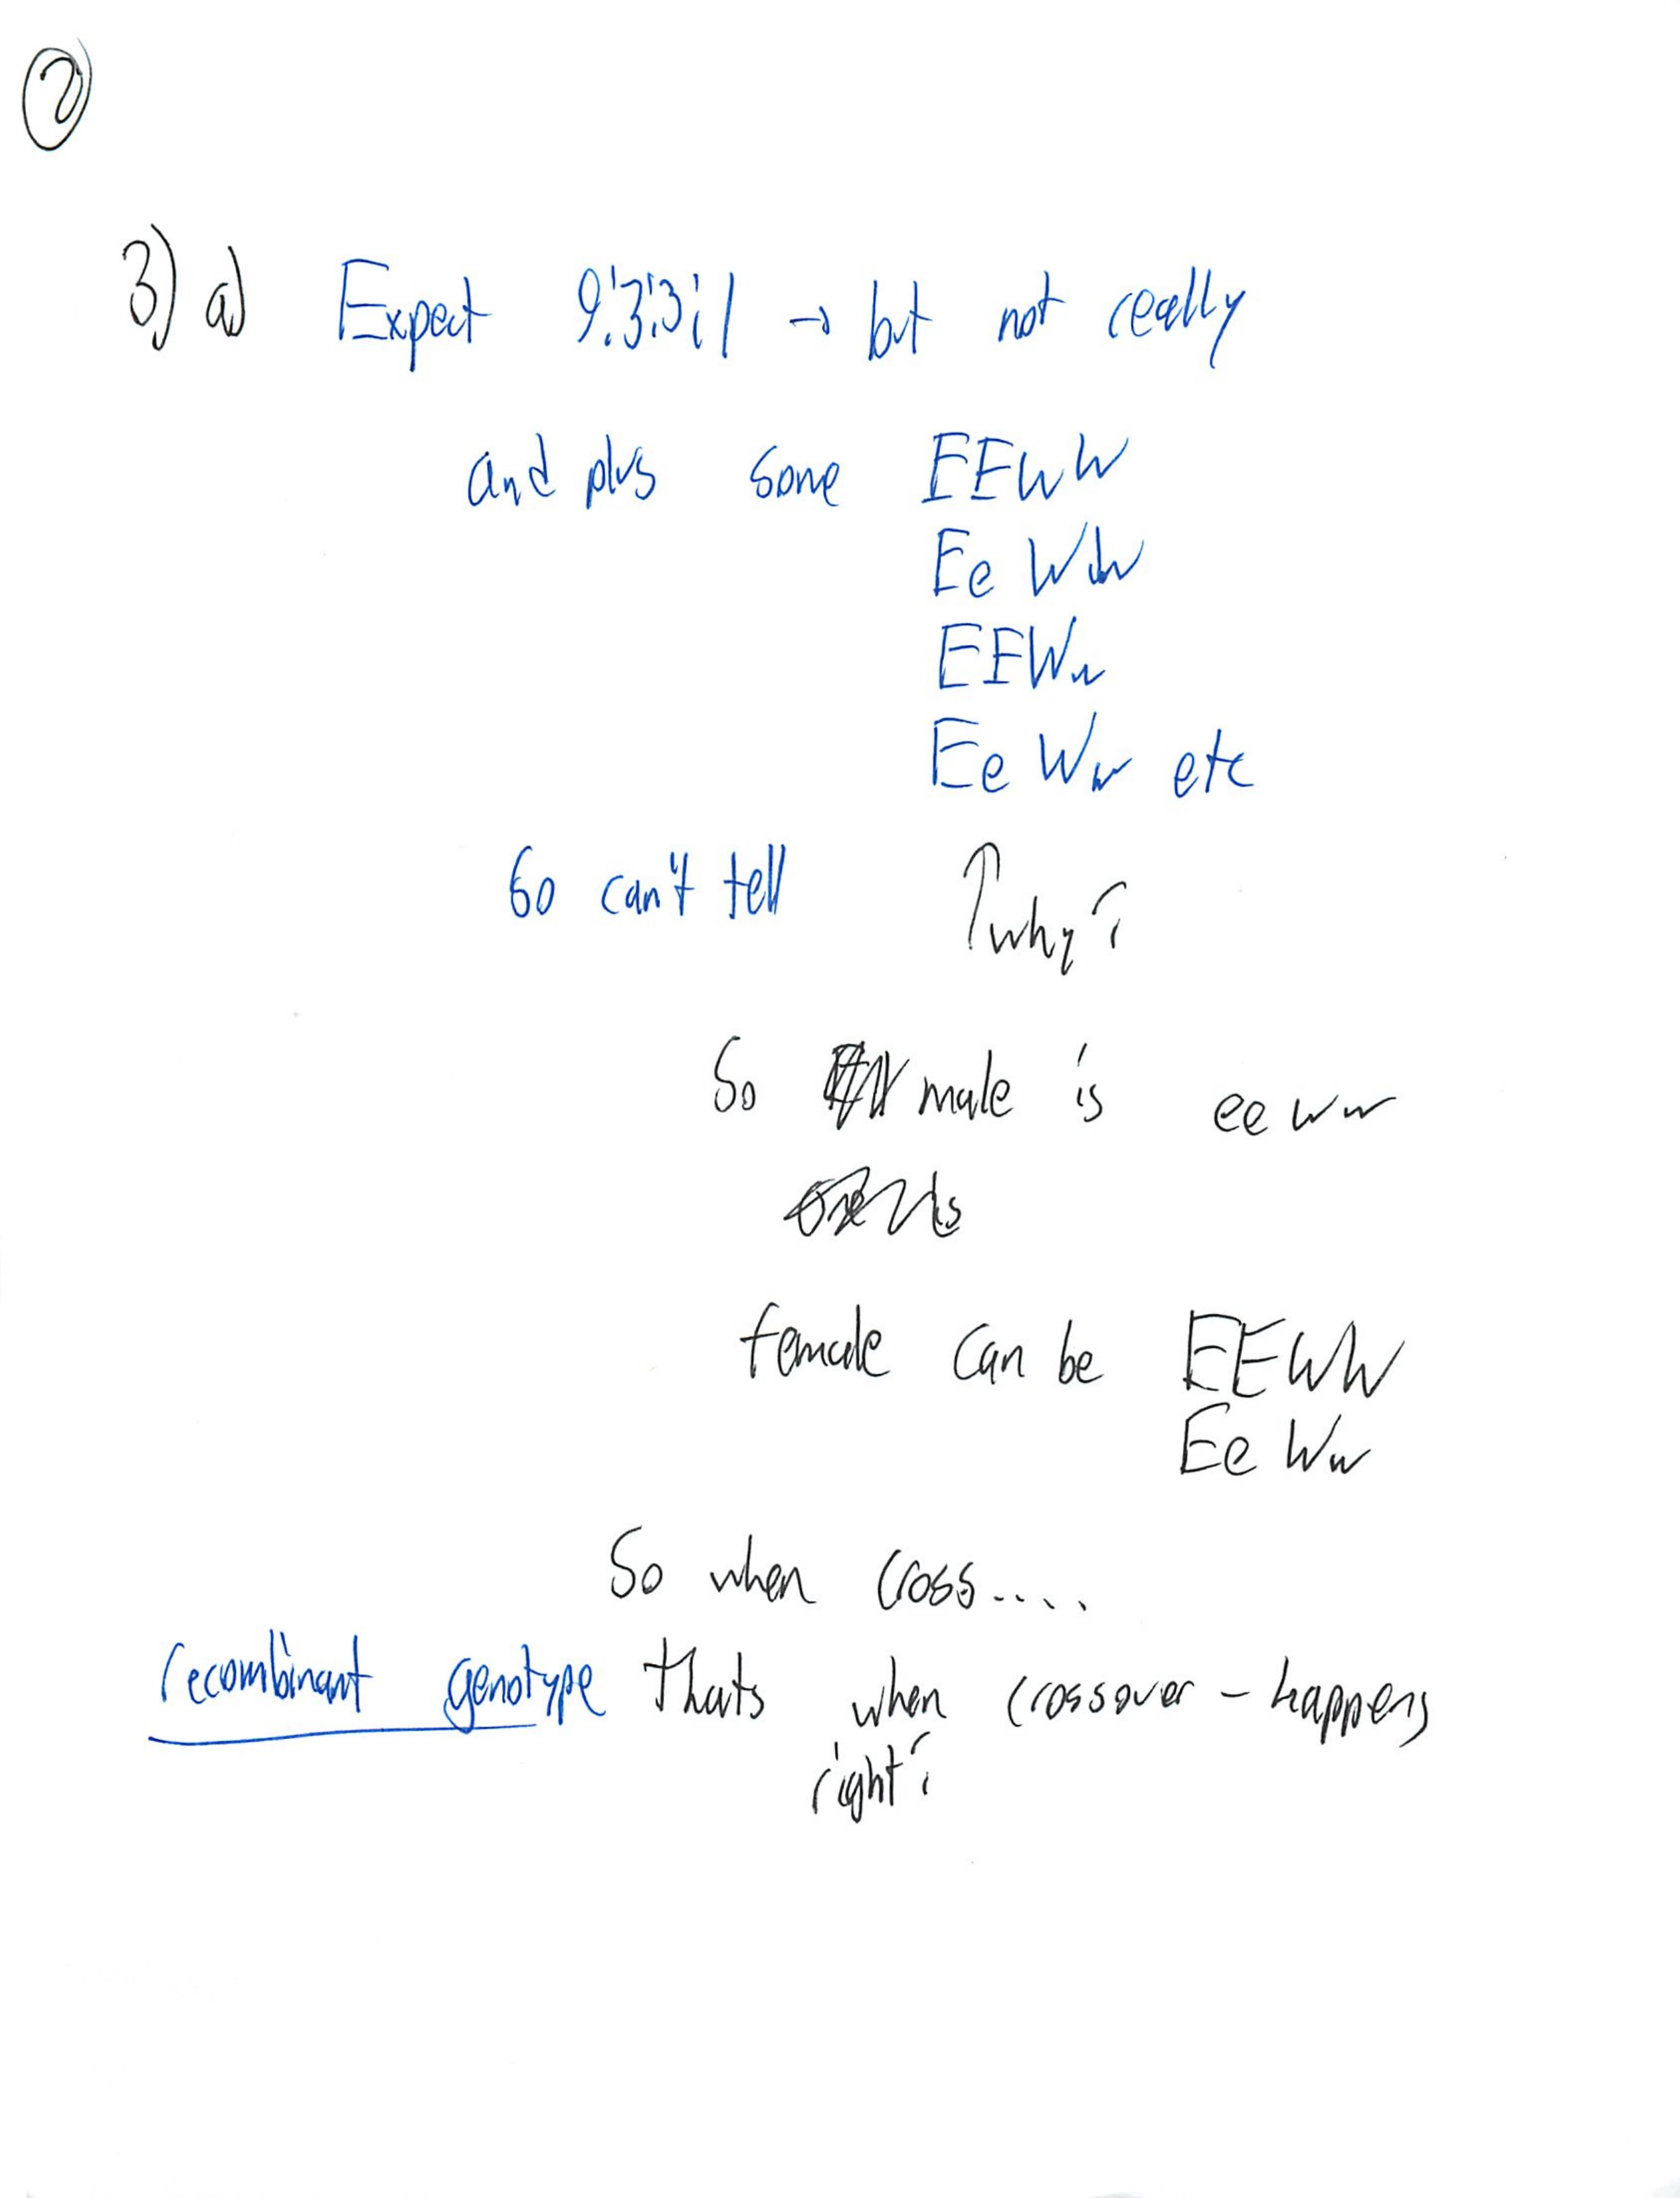 2
3) a) Expect 9:3:3:1 → but not really
and plus some EEWW
Ee WW
EEWw
Ee Ww etc
So can't tell ↑ why?
So male is ee ww
female can be EEWW
Ee Ww
So when cross....
recombinant genotype thats when crossover - happens
right?